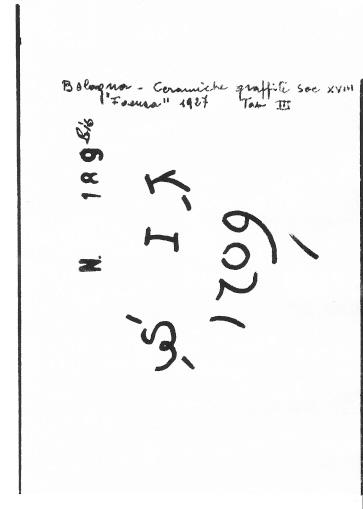 Bologna - Ceramiche graffite sec XVIII
"Faenza" 1927 Tav III
N. 189 bis
S I
1709